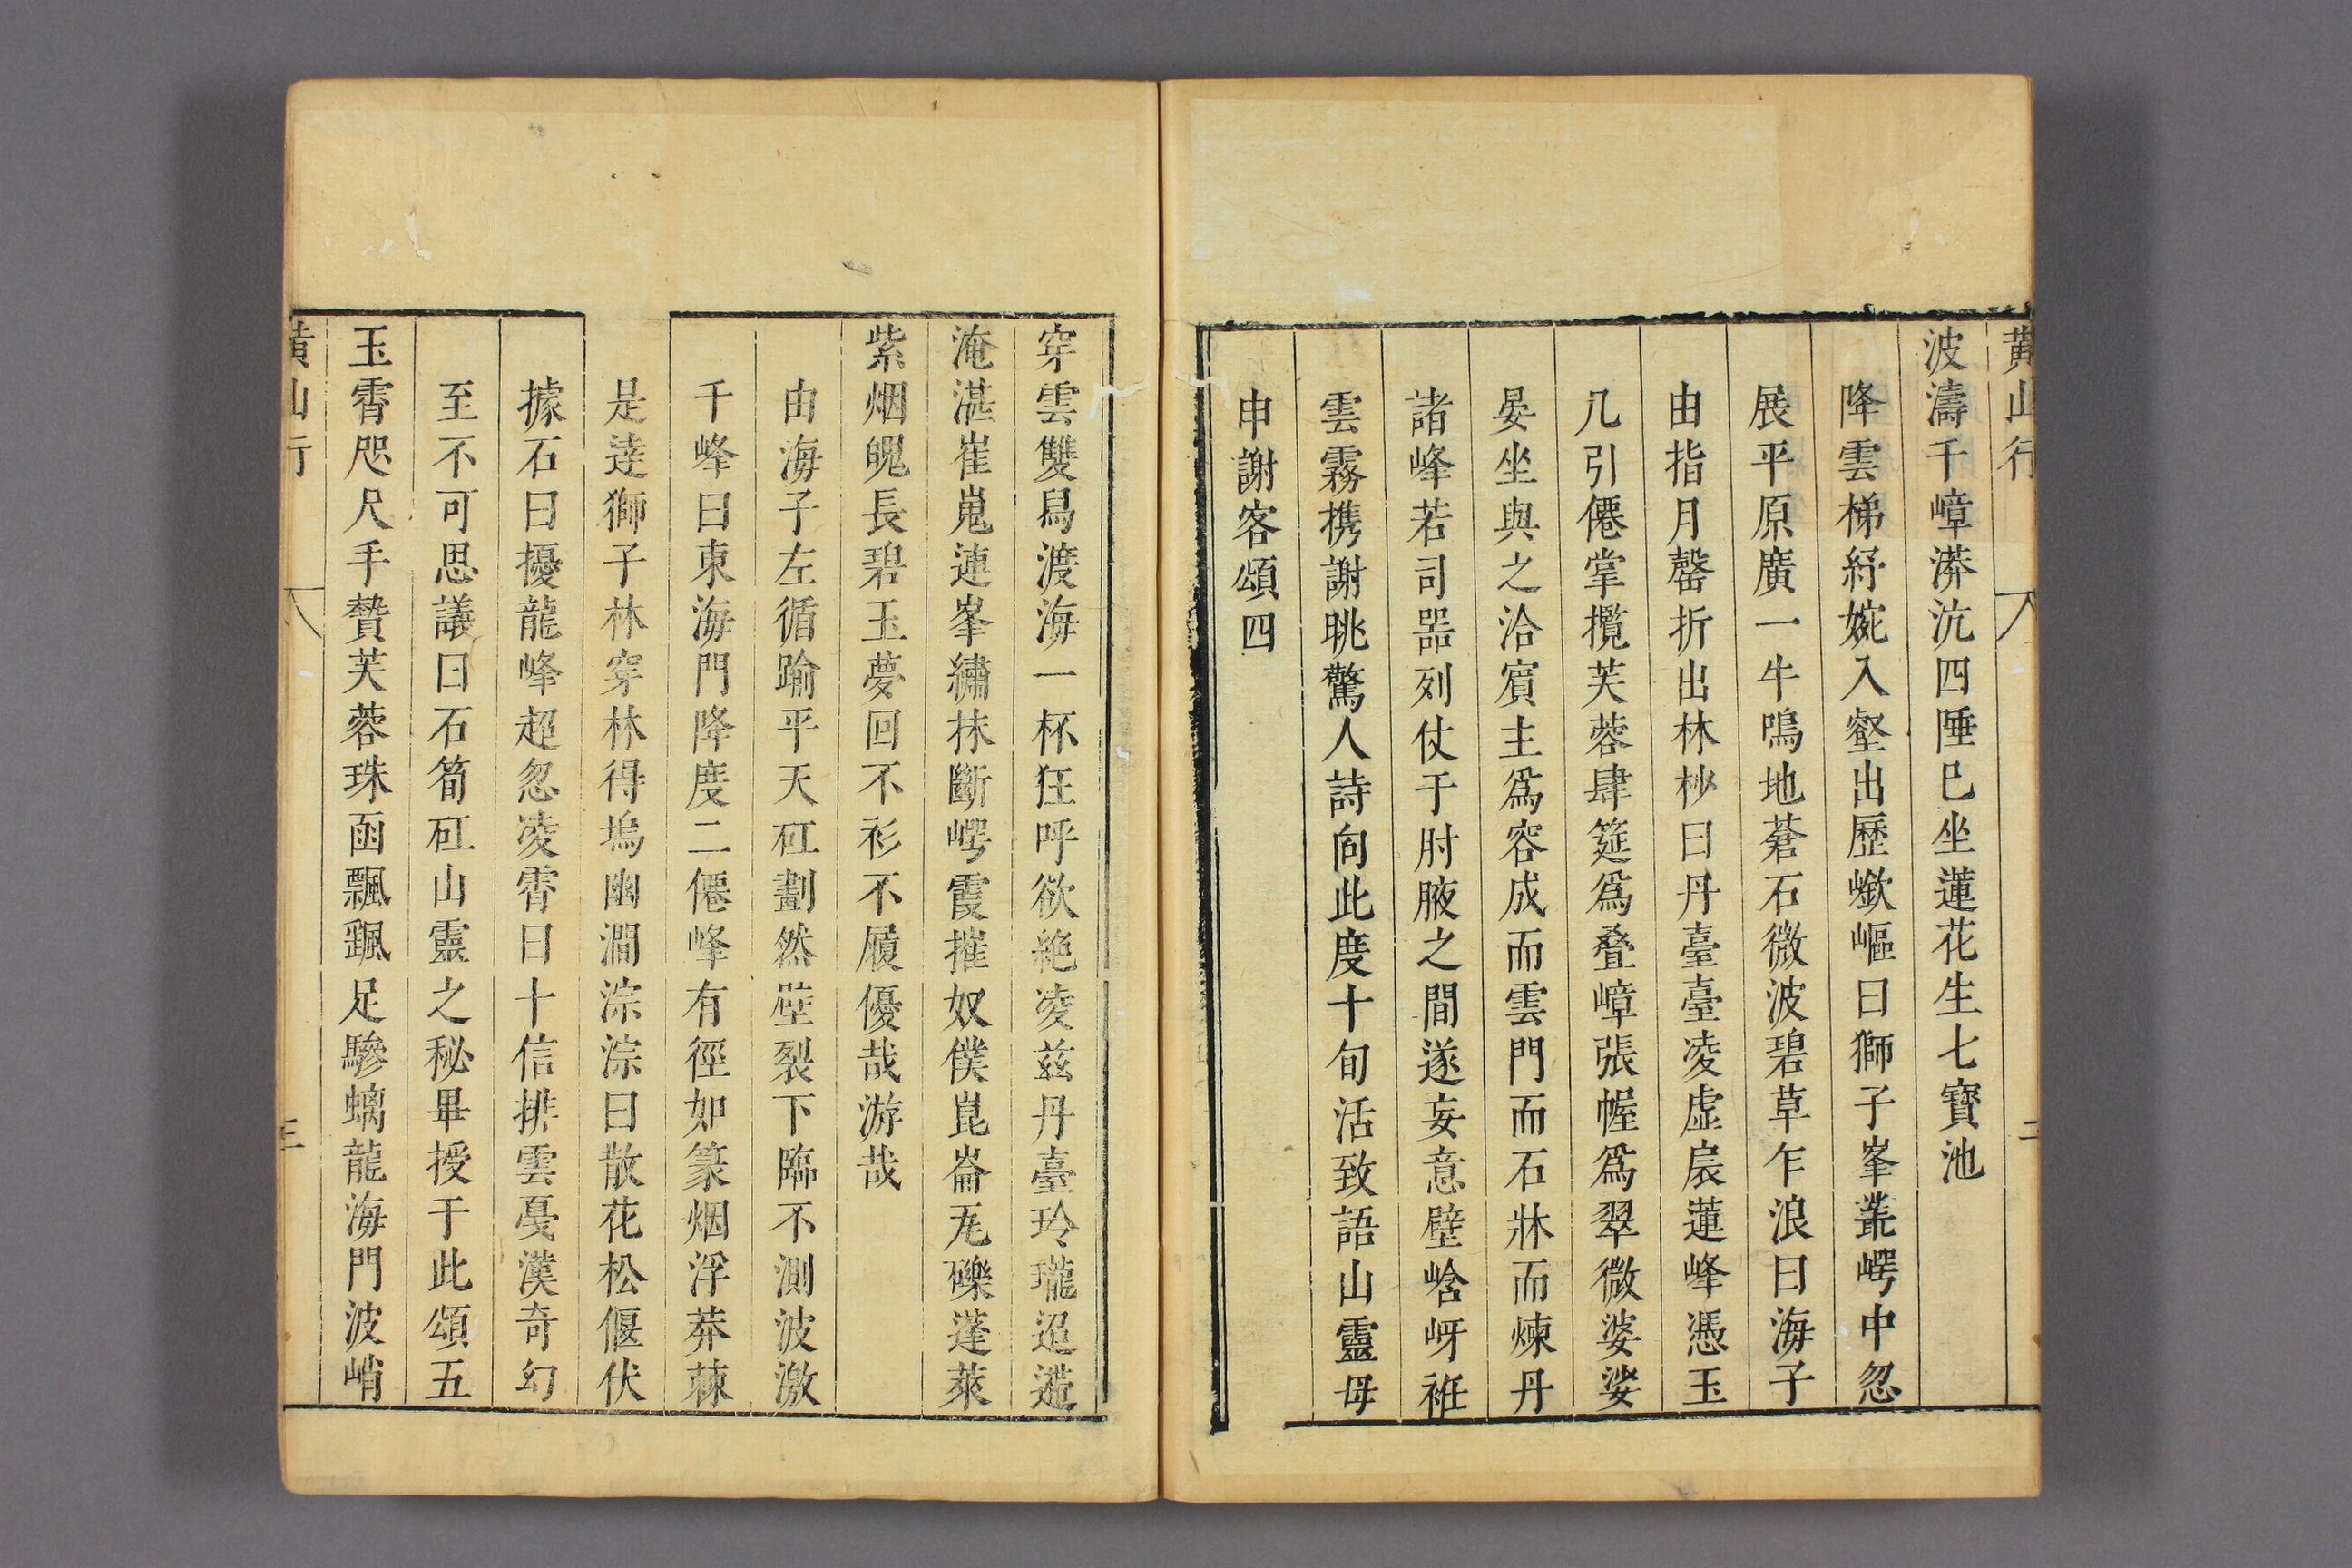 黃山行 二
波濤千嶂漭沆四陲巳坐蓮花生七寶池
降雲梯紆婉入壑出歷嶔嶇曰獅子峯叢崿中忽
展平原廣一牛鳴地蒼石微波碧草乍浪曰海子
由指月罄折出林杪曰丹臺臺凌虛扆蓮峰憑玉
几引僊掌攬芙蓉肆筵爲叠嶂張幄爲翠微婆娑
晏坐與之洽賓主爲容成而雲門而石牀而煉丹
諸峰若司噐列仗于肘腋之間遂妄意壁崯岈袵
雲霧携謝眺驚人詩向此度十旬活致語山靈毋
申謝客頌四
穿雲雙舄渡海一杯狂呼欲絶凌茲丹臺玲瓏迢遰
淹湛崔嵬連峯繡抹斷崿霞摧奴僕崑崙尨礫蓬萊
紫烟皝長碧玉夢回不衫不履優哉游哉
由海子左循踰平天矼劃然壁裂下臨不測波激
千峰曰東海門降度二僊峰有徑如篆烟浮莽蕀
是逹獅子林穿林得塢幽澗淙淙曰散花松偃伏
據石曰擾龍峰超忽凌霄曰十信排雲戞漢奇幻
至不可思議曰石筍矼山靈之秘畢授于此頌五
玉霄咫尺手贄芙蓉珠函飄颻足驂螭龍海門波峭
黃山行 三